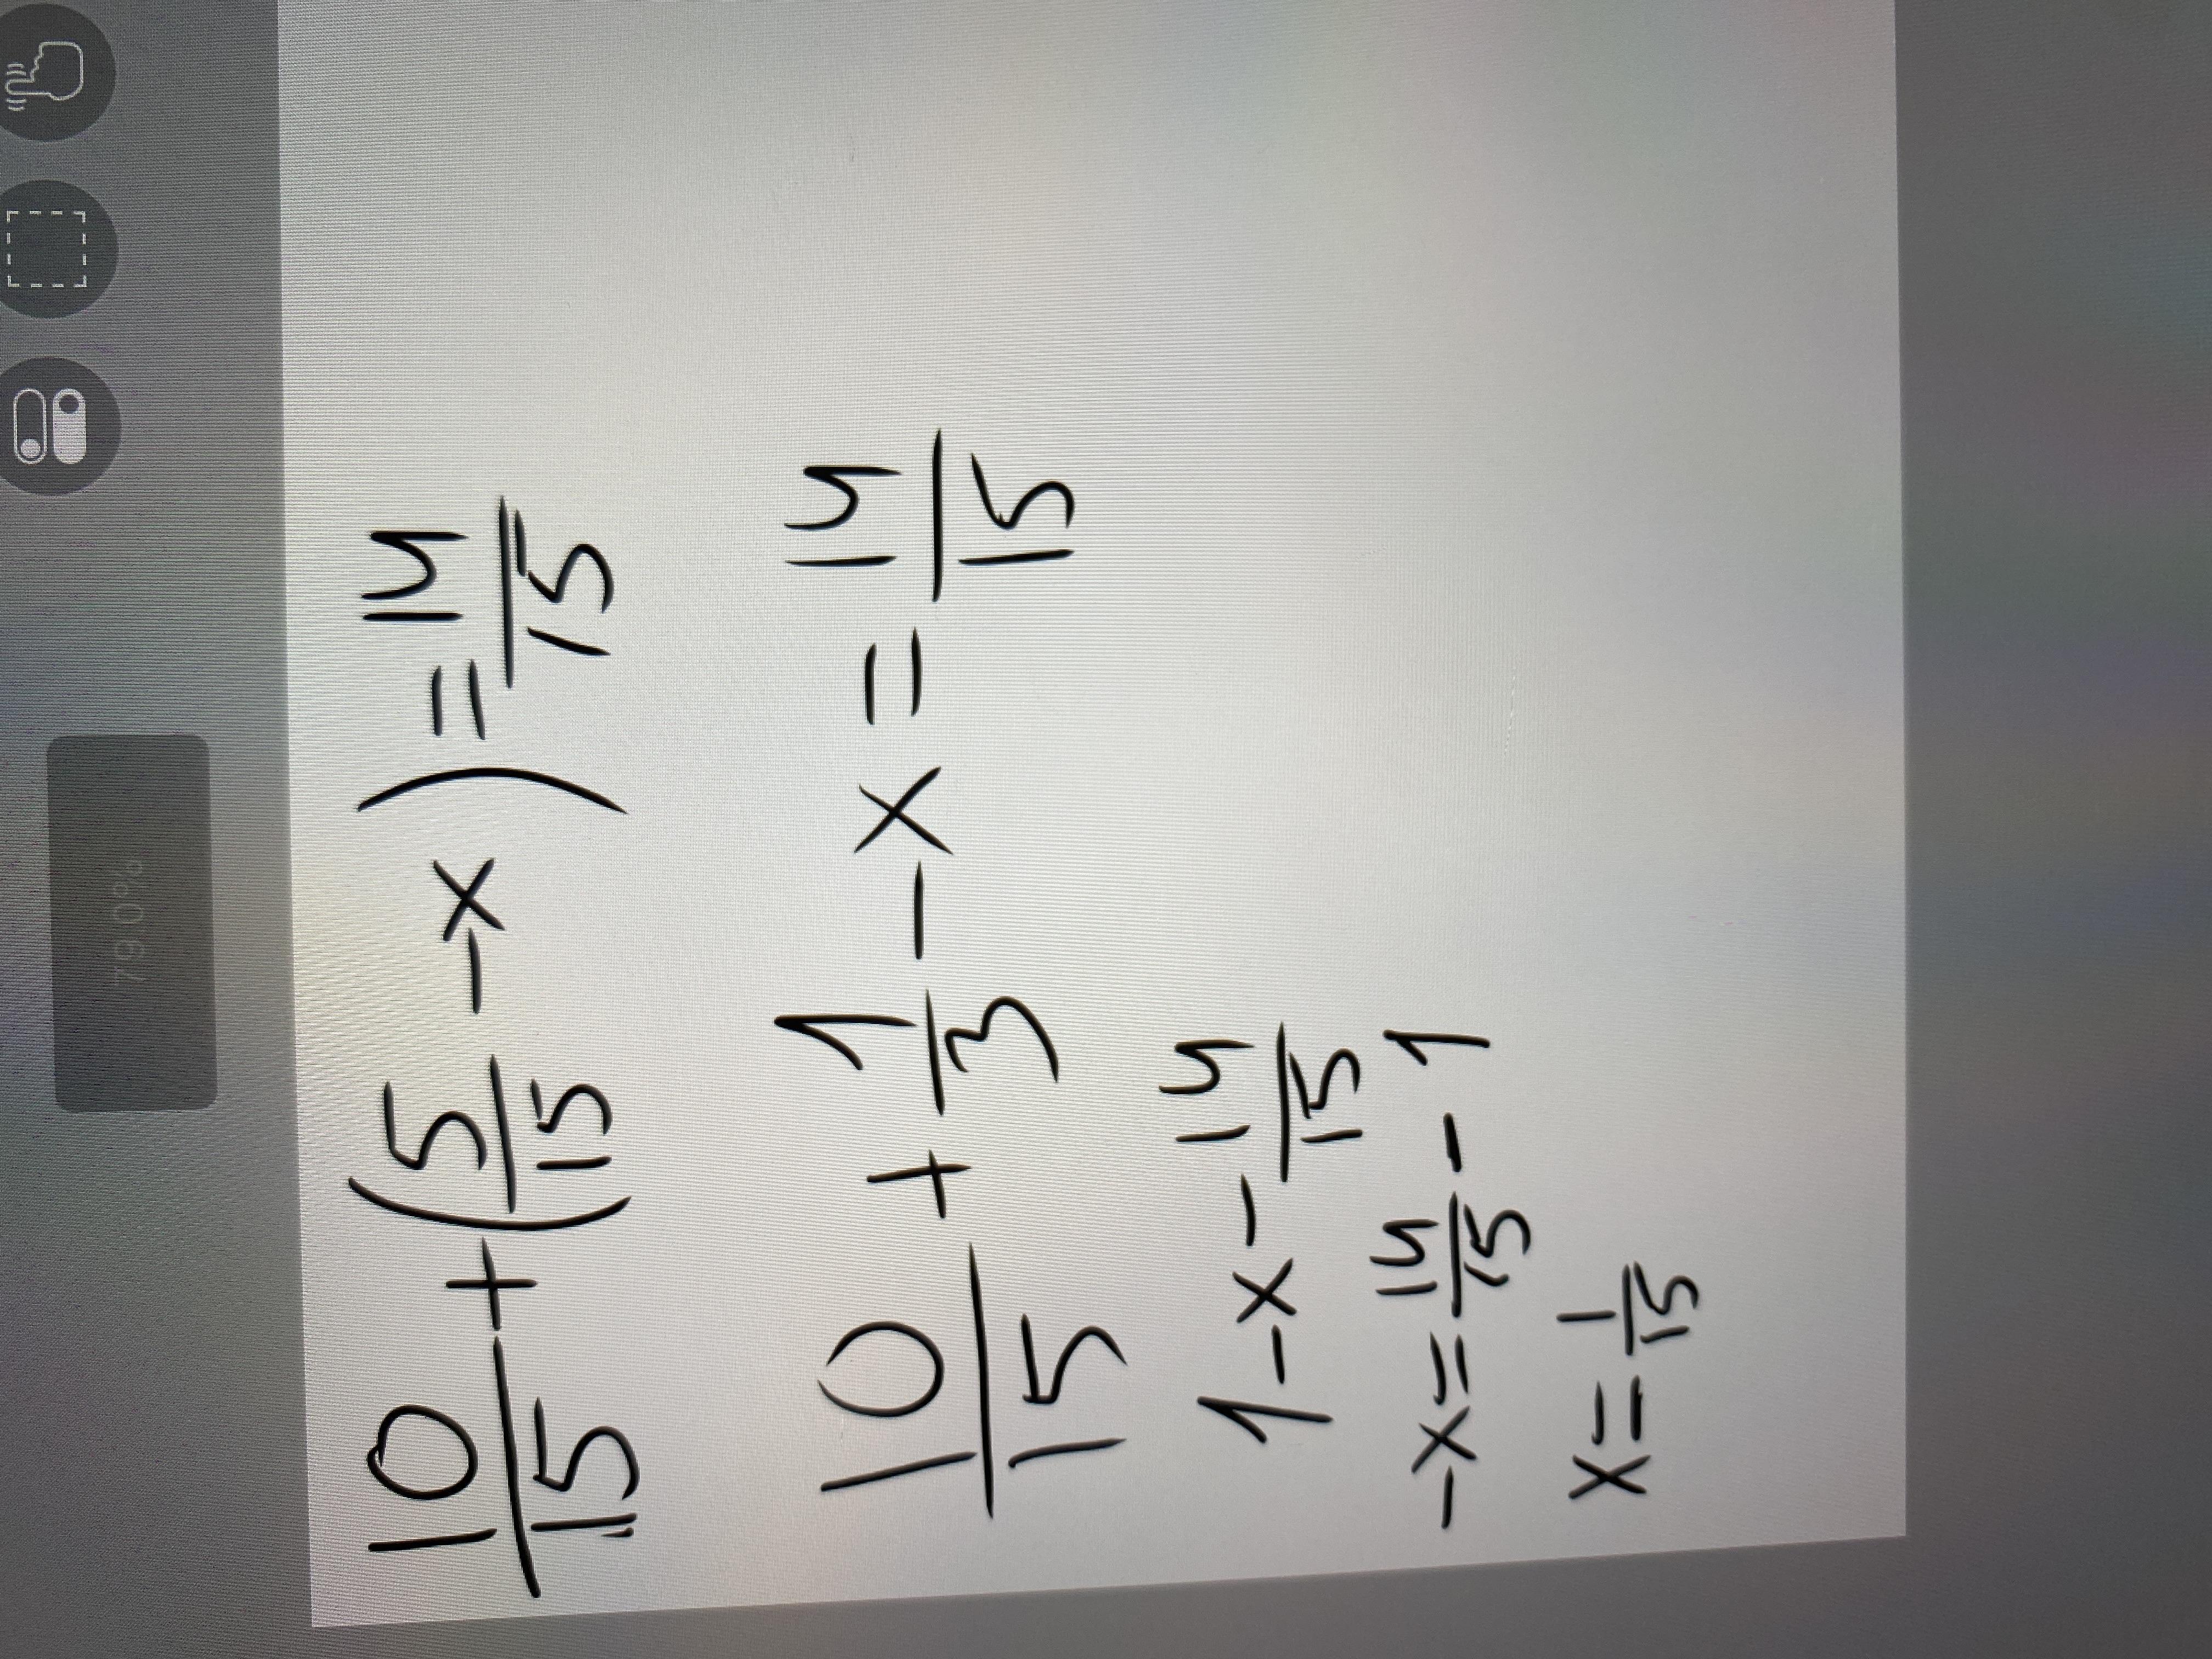 79.0%
10/15 + (5/15 - x) = 14/15
10/15 + 1/3 - x = 14/15
1 - x - 14/15
-x = 14/15 - 1
x = 1/15